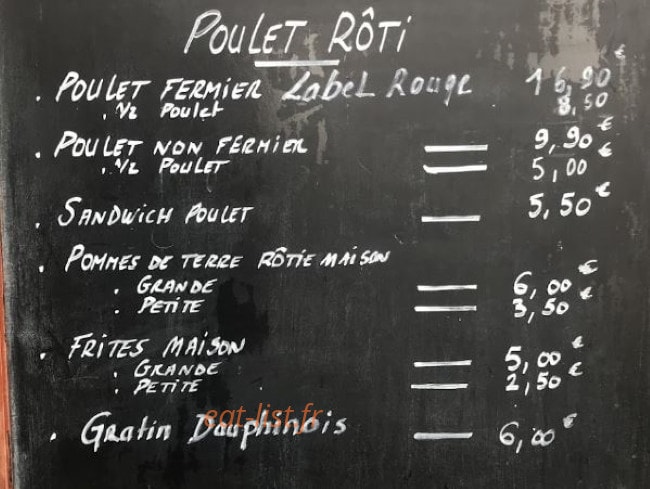 POULET RÔTI
. POULET FERMIER Label Rouge 16,90 €
. 1/2 Poulet 8,50
. POULET NON FERMIER — 9,90 €
. 1/2 POULET — 5,00 €
. SANDWICH POULET — 5,50 €
. POMMES DE TERRE RÔTIE MAISON
. GRANDE — 6,00 €
. PETITE — 3,50 €
. FRITES MAISON
. GRANDE — 5,00 €
. PETITE — 2,50 €
eat-list.fr
. Gratin Dauphinois — 6,00 €